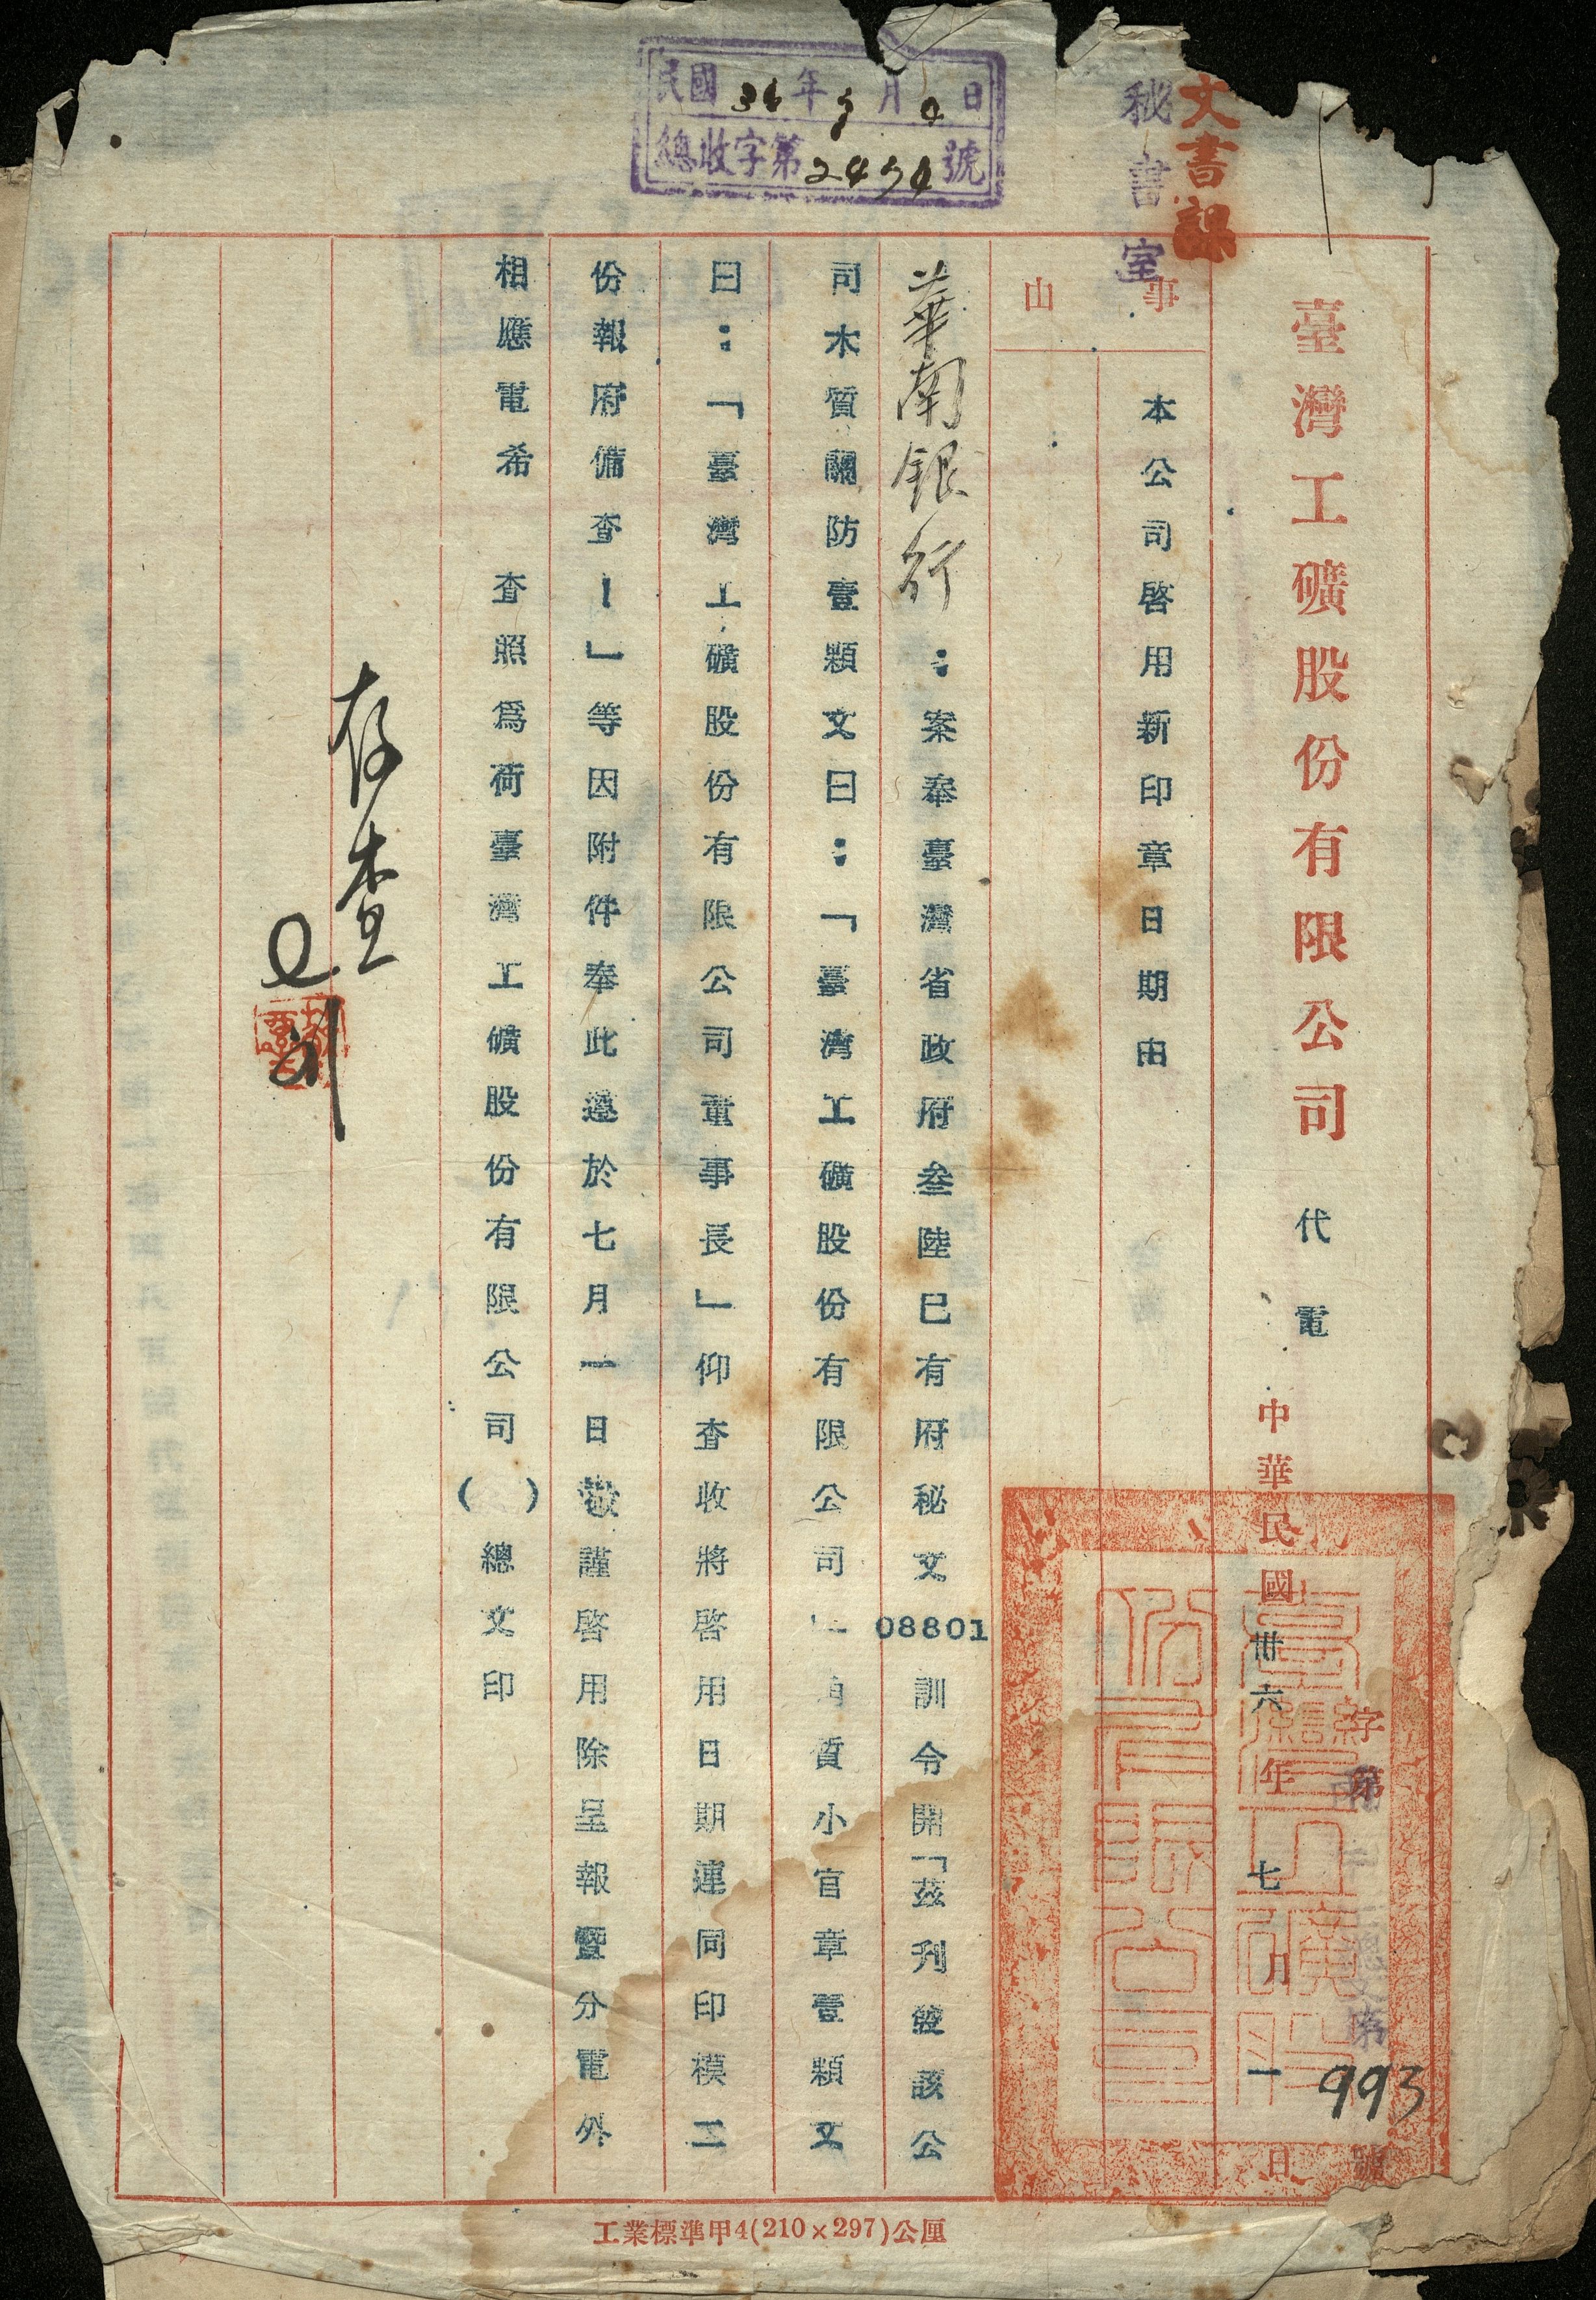 民國36年 月 日
總收字第24 號
文書課
秘書室
臺灣工礦股份有限公司 代電
中華民國卅六年七月一日
字第993號
事由
本公司啓用新印章日期由
華南銀行:案奉臺灣省政府叁陸巳有府秘文08801訓令開「茲刋發該公
司木質關防壹顆文曰:「臺灣工礦股份有限公司」 質小官章壹顆文
曰:「臺灣工礦股份有限公司董事長」仰查收將啓用日期連同印模二
份報府備查!」等因附件奉此遵於七月一日敬謹啓用除呈報暨分電外
相應電希 查照爲荷臺灣工礦股份有限公司( )總文印
存查
工業標準甲4(210×297)公厘